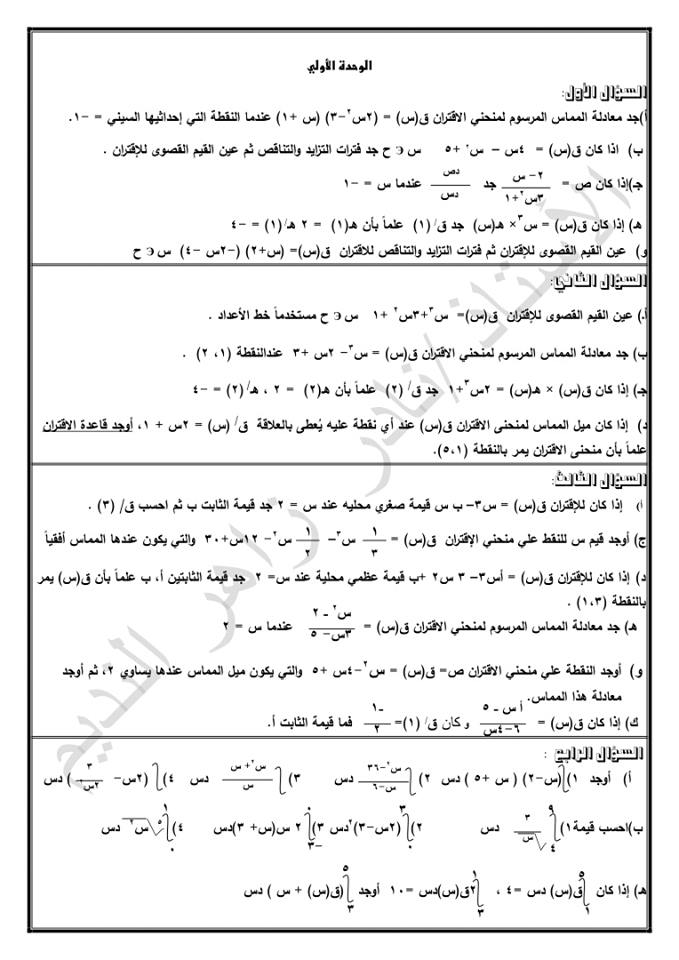 الوحدة الأولي
السؤال الأول:
أ)جد معادلة المماس المرسوم لمنحني الاقتران ق(س) = (٢س٢-٣) (س +١) عندما النقطة التي إحداثيها السيني = -١.
ب) اذا كان ق(س) = ٤س - س٢ +٥ س э ح جد فترات التزايد والتناقص ثم عين القيم القصوى للإقتران .
جـ)إذا كان ص = (٢- س)/(٣س٢+١) جد دص/دس عندما س = -١
هـ) إذا كان ق(س) = س٣× هـ(س) جد ق/ (١) علماً بأن هـ(١) = ٢ هـ/ (١) = -٤
و) عين القيم القصوى للإقتران ثم فترات التزايد والتناقص للاقتران ق(س)= (س+٢) (-٢س -٤) س э ح
السؤال الثاني:
أ.) عين القيم القصوى للإقتران ق(س)= س٣+٣س٢ +١ س э ح مستخدماً خط الأعداد .
ب) جد معادلة المماس المرسوم لمنحني الاقتران ق(س) = س٣- ٢س +٣ عندالنقطة (١، ٢) .
جـ) إذا كان ق(س) × هـ(س) = ٢س٣+١ جد ق/ (٢) علماً بأن هـ(٢) = ٢ ، هـ/ (٢) = -٤
د) إذا كان ميل المماس لمنحنى الاقتران ق(س) عند أي نقطة عليه يُعطى بالعلاقة ق/ (س) = ٢س + ١، أوجد قاعدة الاقتران
علماً بأن منحنى الاقتران يمر بالنقطة (٥،١).
السؤال الثالث:
أ) إذا كان للإقتران ق(س) = س٣- ب س قيمة صغري محليه عند س = ٢ جد قيمة الثابت ب ثم احسب ق/ (٣) .
ج) أوجد قيم س للنقط علي منحني الإقتران ق(س) = ١/٣ س٣- ١/٢ س٢- ١٢س+٣٠ والتي يكون عندها المماس أفقياً
د) إذا كان للإقتران ق(س) = أس٣- ٣ س٢ +ب قيمة عظمي محلية عند س= ٢ جد قيمة الثابتين أ، ب علماً بأن ق(س) يمر
بالنقطة (١،٣) .
هـ) جد معادلة المماس المرسوم لمنحني الاقتران ق(س) = (س٢ - ٢)/(٣س- ٥) عندما س = ٢
و) أوجد النقطة علي منحني الاقتران ص= ق(س) = س٢-٤س +٥ والتي يكون ميل المماس عندها يساوي ٢، ثم أوجد
معادلة هذا المماس.
ك) إذا كان ق(س) = (أ س - ٥)/(٦-٤س) و كان ق/ (١)= -١/٢ فما قيمة الثابت أ.
السؤال الرابع :
أ) أوجد ١)∫(س-٢) ( س +٥ ) دس ٢) ∫ (س٢-٣٦)/(س-٦) دس ٣) ∫ (س٢+ س)/س دس ٤) ∫ (٢س- ٣/٢س) دس
ب)احسب قيمة١)∫ ٩ ٤ ٣/√س دس ٢)∫ ٣ ٠ (٢س-٣)٢دس ٣)∫ ٠ -٣ ٢ س(س+ ٣)دس ٤)∫ ١ ٠ ٥√س٢ دس
هـ) إذا كان ∫ ٥ ١ ق(س) دس =٤ ، ∫ ١ ٣ ٢ق(س)دس =١٠ أوجد ∫ ٥ ٣ (ق(س) + س ) دس
الأستاذ / نادر زاهر النديم